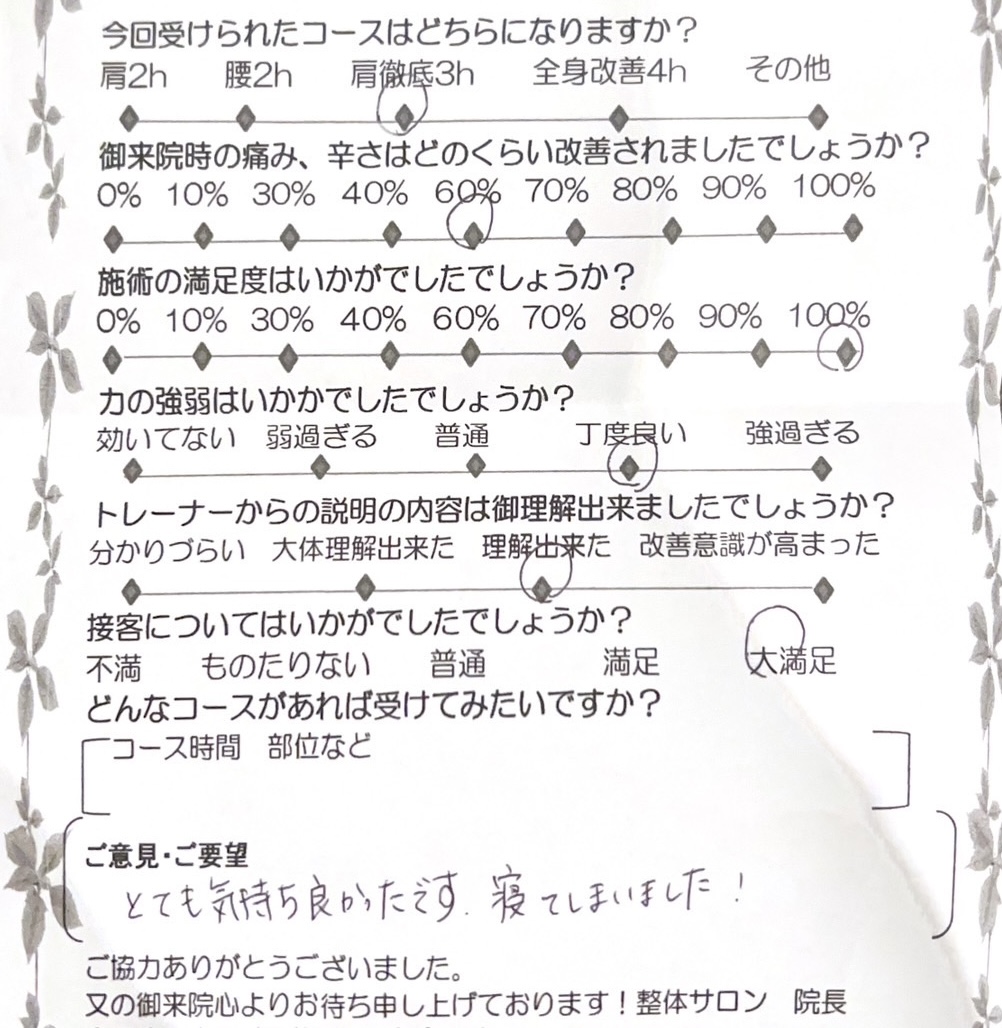 今回受けられたコースはどちらになりますか？
肩2h 腰2h 肩徹底3h 全身改善4h その他
御来院時の痛み、辛さはどのくらい改善されましたでしょうか？
0% 10% 30% 40% 60% 70% 80% 90% 100%
施術の満足度はいかがでしたでしょうか？
0% 10% 30% 40% 60% 70% 80% 90% 100%
力の強弱はいかかでしたでしょうか？
効いてない 弱過ぎる 普通 丁度良い 強過ぎる
トレーナーからの説明の内容は御理解出来ましたでしょうか？
分かりづらい 大体理解出来た 理解出来た 改善意識が高まった
接客についてはいかがでしたでしょうか？
不満 ものたりない 普通 満足 大満足
どんなコースがあれば受けてみたいですか？
コース時間 部位など
ご意見・ご要望
とても気持ち良かったです. 寝てしまいました！
ご協力ありがとうございました。
又の御来院心よりお待ち申し上げております！整体サロン 院長